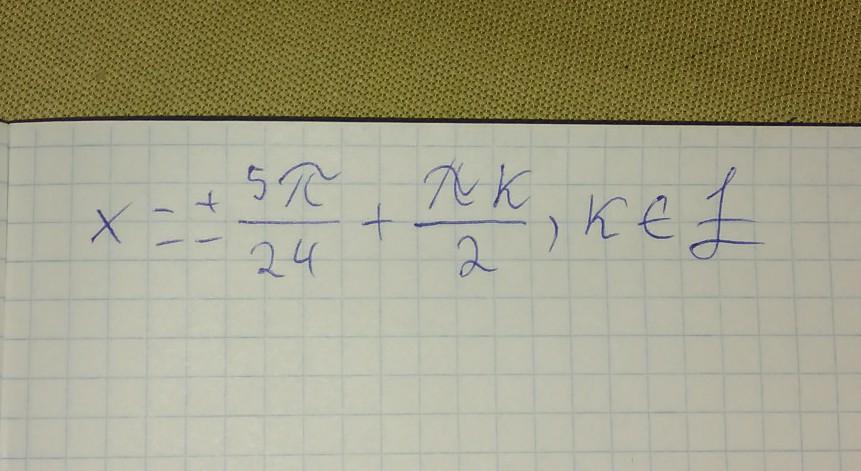 x = ± 5π/24 + πk/2, k ∈ Z